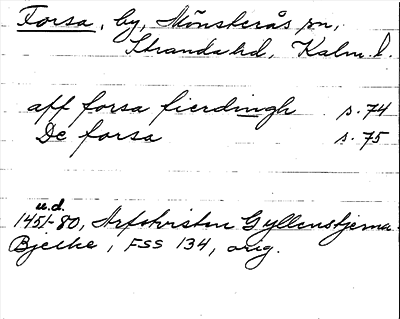 Forsa, by, Mönsterås sn,
Stranda hd, Kalm. l.
aff forsa fierdingh s. 74
De forsa s. 75
u.d.
1451-80, Arftvisten Gyllenstjerna-
Bjelke, FSS 134, orig.